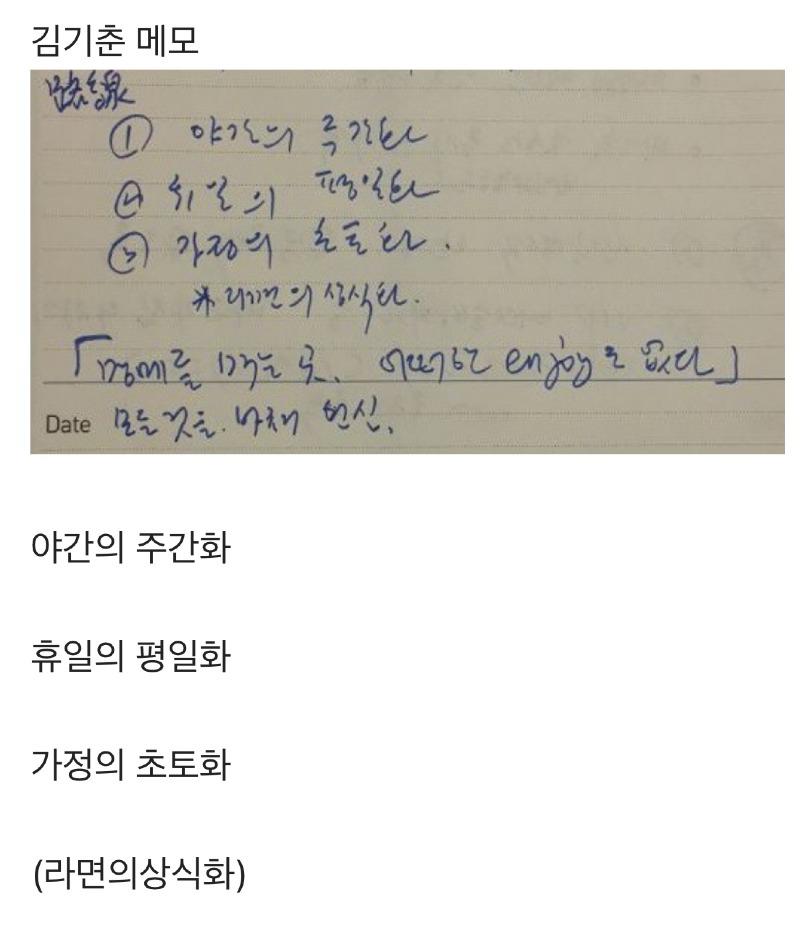 김기춘 메모
① 야간의 주간화
② 휴일의 평일화
③ 가정의 초토화.
※ 라면의 상식화.
「명예를 먹는 곳. 어떠한 enjoy도 없다」
Date 모든 것을. 바쳐 헌신.
야간의 주간화
휴일의 평일화
가정의 초토화
(라면의상식화)